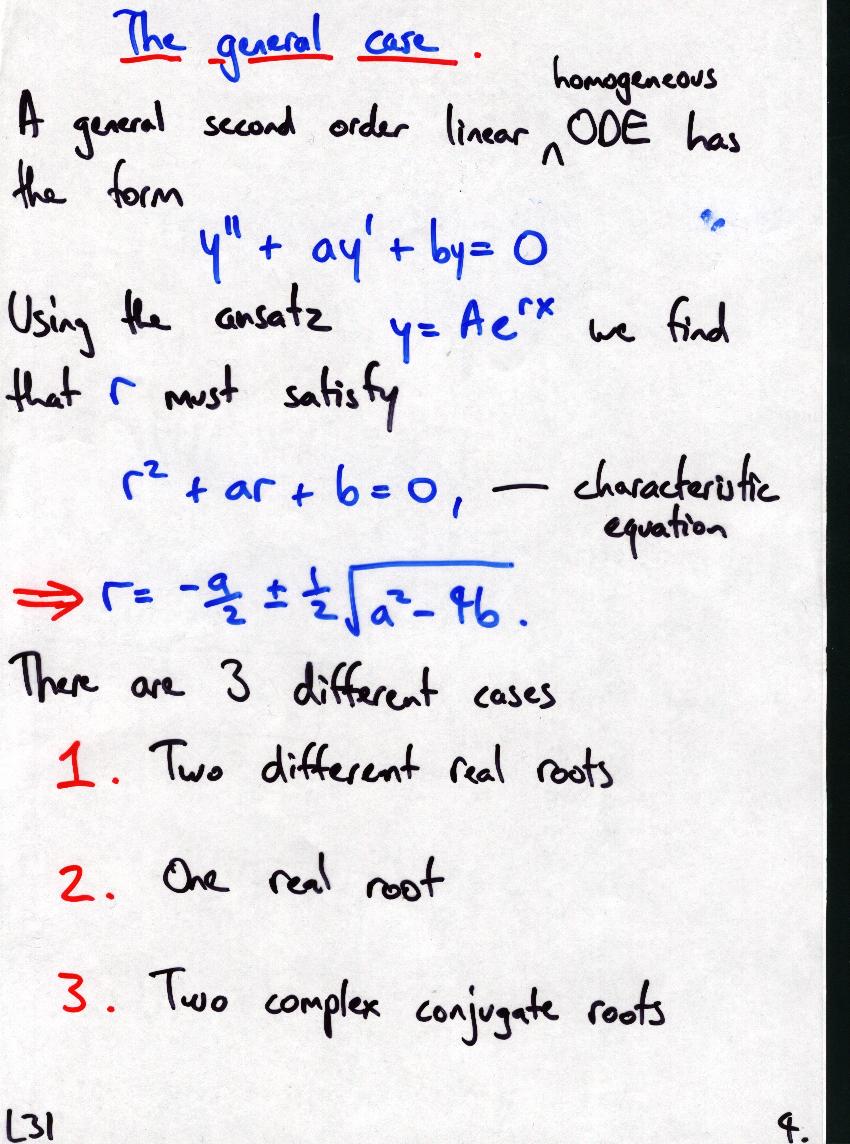 The general case.
homogeneous
A general second order linear ^ ODE has
the form
y'' + ay' + by = 0
Using the ansatz y = Ae^{rx} we find
that r must satisfy
r² + ar + b = 0, — characteristic
equation
⇒ r = -a/2 ± 1/2 √(a² - 4b).
There are 3 different cases
1. Two different real roots
2. One real root
3. Two complex conjugate roots
L31 4.